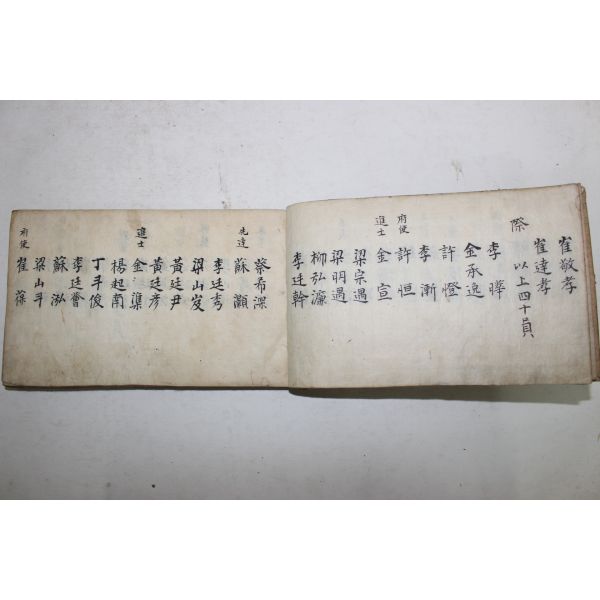 崔敬孝
崔達孝
際 以上四十員
李曄
金承逸
許憕
李漸
府使 許恒
進士 金宣
梁宗遇
梁明遇
柳弘濂
李廷幹
蔡希深
先達 蘇灝
李廷秀
梁山岌
黃廷尹
黃廷彦
進士 金渠
楊起南
丁斗俊
李廷薈
蘇泓
梁山斗
府使 崔葆